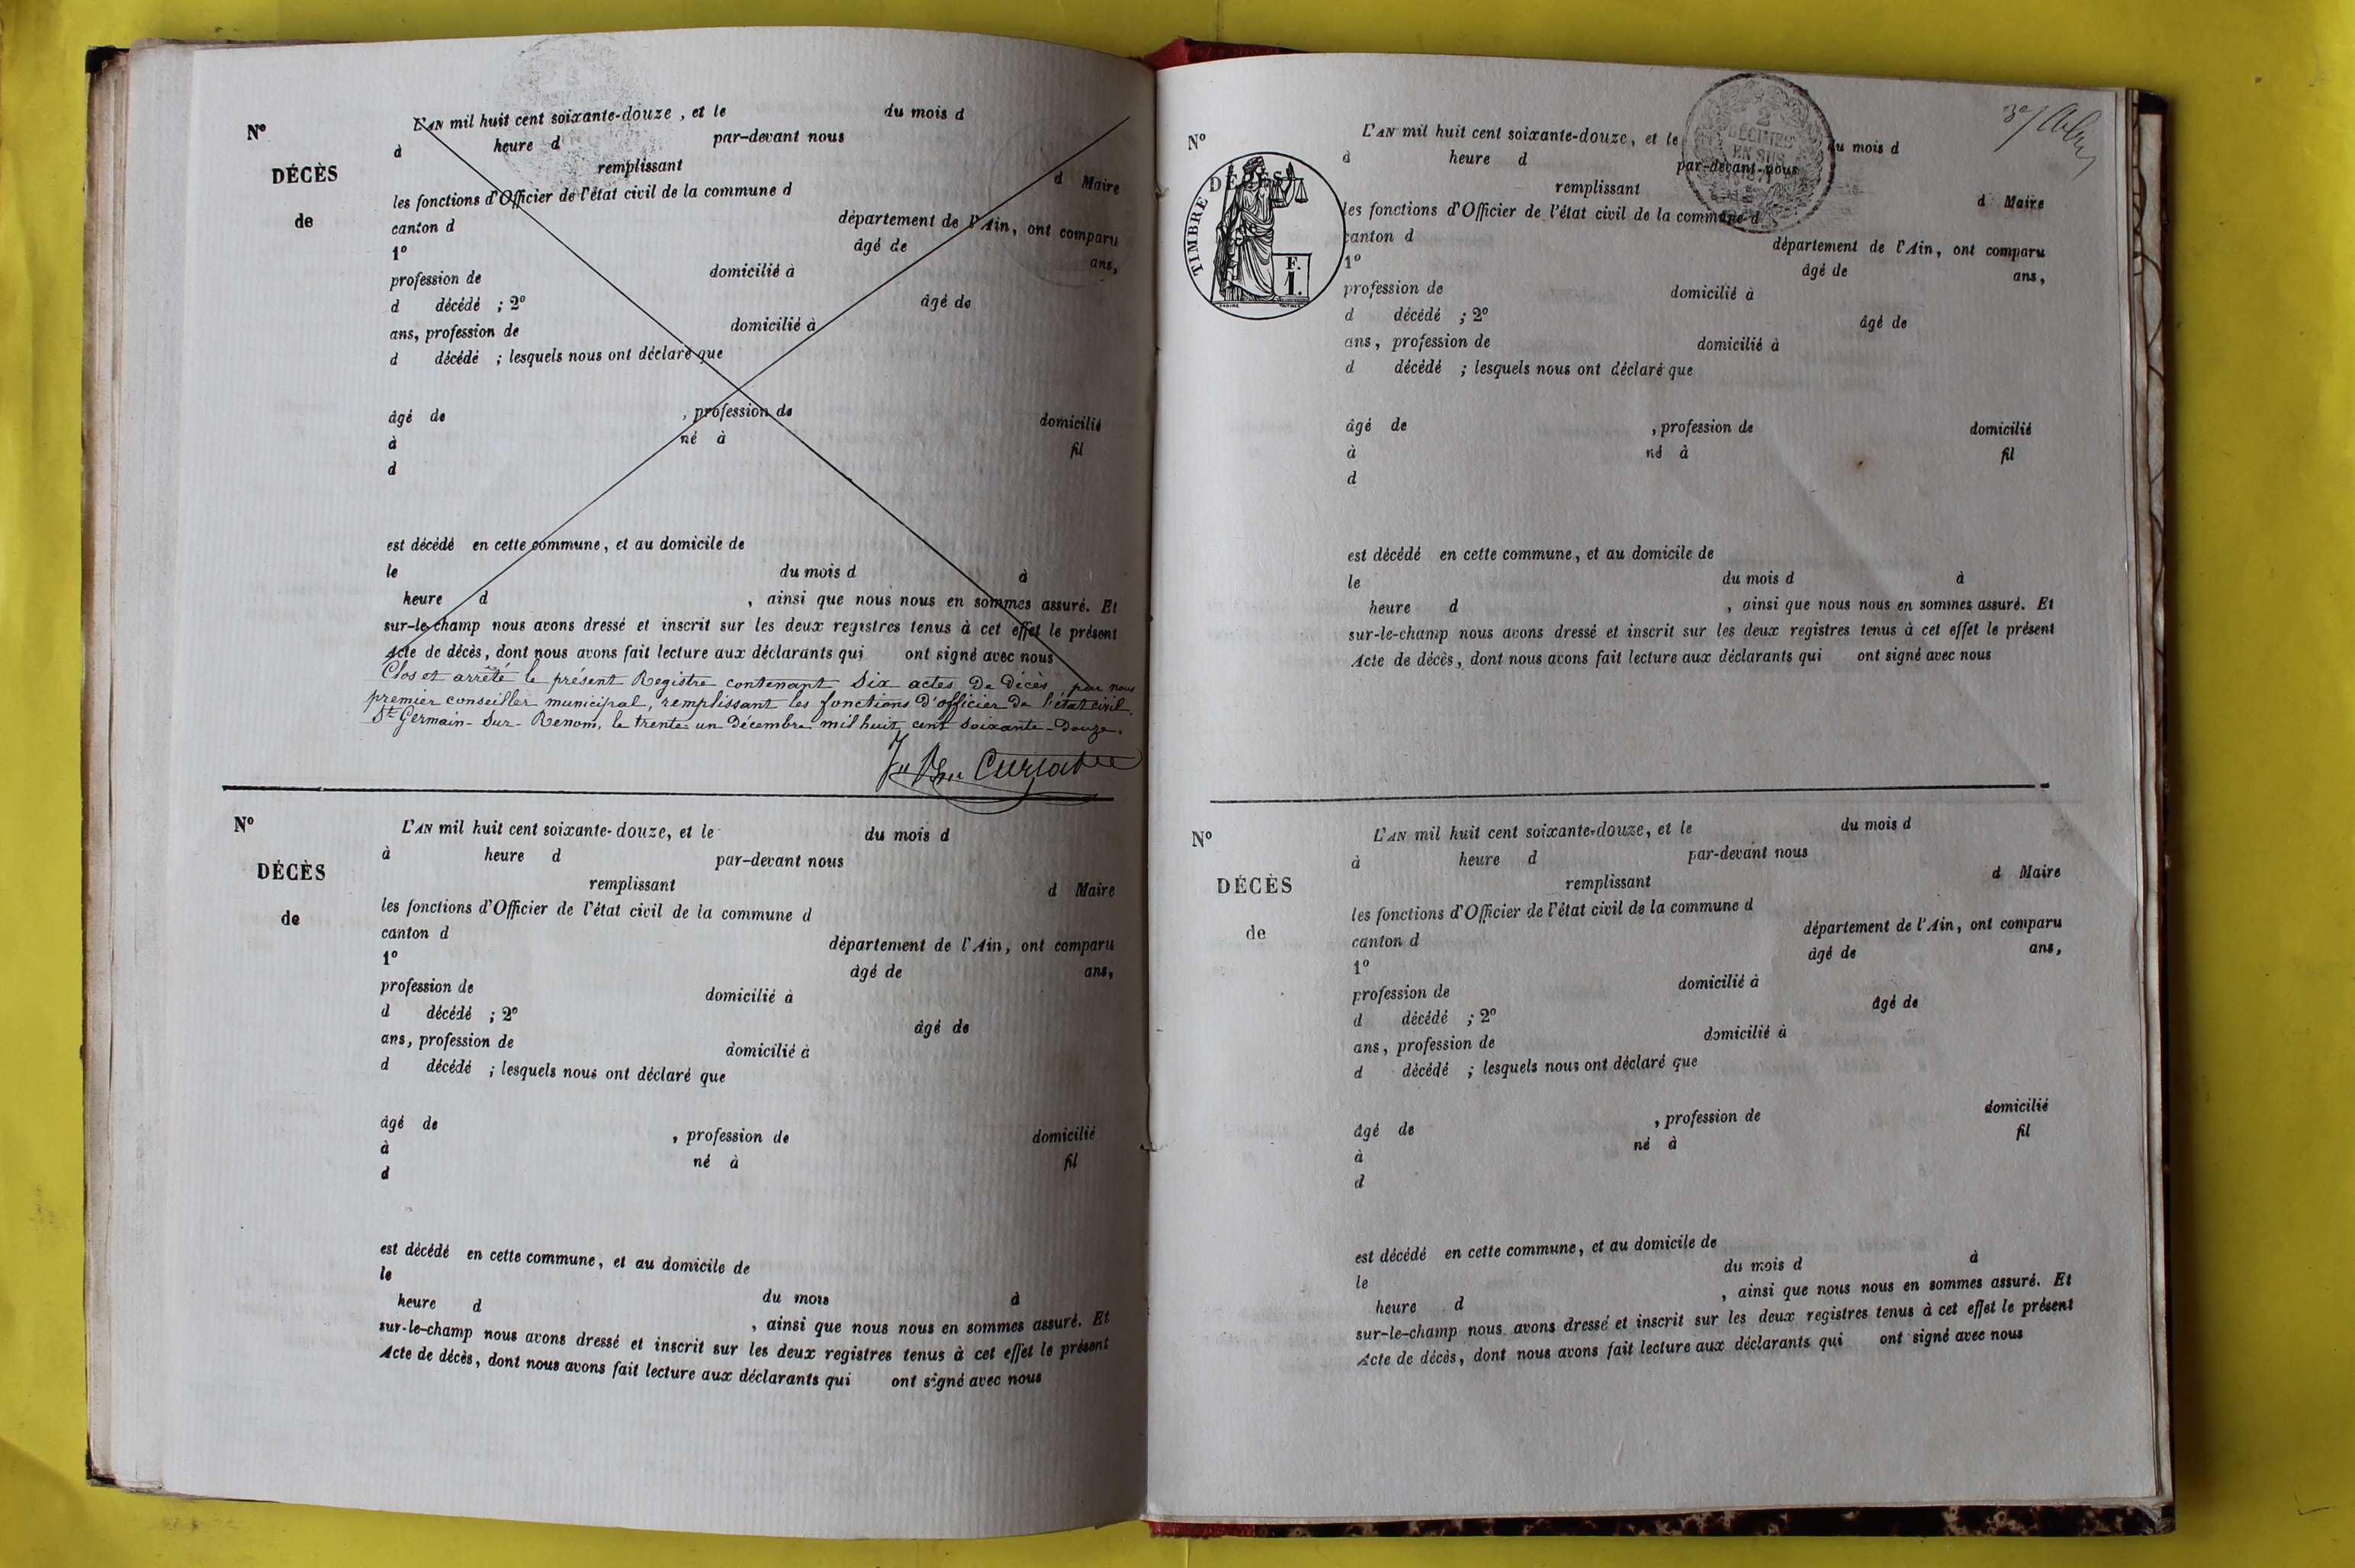 N°
DÉCÈS
de
L'AN mil huit cent soixante-douze, et le du mois d
à heure d par-devant nous
remplissant d Maire
les fonctions d'Officier de l'état civil de la commune d
canton d département de l'Ain, ont comparu
1° âgé de ans,
profession de domicilié à
d décédé ; 2° âgé de
ans, profession de domicilié à
d décédé ; lesquels nous ont déclaré que
âgé de , profession de domicilié
à né à fil
d
est décédé en cette commune, et au domicile de
le du mois d à
heure d , ainsi que nous nous en sommes assuré. Et
sur-le-champ nous avons dressé et inscrit sur les deux registres tenus à cet effet le présent
Acte de décès, dont nous avons fait lecture aux déclarants qui ont signé avec nous
Clos et arrêté le présent Registre contenant Six actes De Décès, par nous
premier conseiller municipal, remplissant les fonctions d'officier De l'état civil.
St Germain-Sur-Renom, le trente un Décembre mil huit cent Soixante-Douze.
N°
DÉCÈS
de
L'AN mil huit cent soixante-douze, et le du mois d
à heure d par-devant nous
remplissant d Maire
les fonctions d'Officier de l'état civil de la commune d
canton d département de l'Ain, ont comparu
1° âgé de ans,
profession de domicilié à
d décédé ; 2° âgé de
ans, profession de domicilié à
d décédé ; lesquels nous ont déclaré que
âgé de , profession de domicilié
à né à fil
d
est décédé en cette commune, et au domicile de
le du mois à
heure d , ainsi que nous nous en sommes assuré. Et
sur-le-champ nous avons dressé et inscrit sur les deux registres tenus à cet effet le présent
Acte de décès, dont nous avons fait lecture aux déclarants qui ont signé avec nous
N°
DÉCÈS
TIMBRE
F.
1.
2
DÉCIMES
EN SUS
L'AN mil huit cent soixante-douze, et le du mois d
à heure d par-devant nous
remplissant d Maire
les fonctions d'Officier de l'état civil de la commune d
canton d département de l'Ain, ont comparu
1° âgé de ans,
profession de domicilié à
d décédé ; 2° âgé de
ans, profession de domicilié à
d décédé ; lesquels nous ont déclaré que
âgé de , profession de domicilié
à né à fil
d
est décédé en cette commune, et au domicile de
le du mois d à
heure d , ainsi que nous nous en sommes assuré. Et
sur-le-champ nous avons dressé et inscrit sur les deux registres tenus à cet effet le présent
Acte de décès, dont nous avons fait lecture aux déclarants qui ont signé avec nous
N°
DÉCÈS
de
L'AN mil huit cent soixante-douze, et le du mois d
à heure d par-devant nous
remplissant d Maire
les fonctions d'Officier de l'état civil de la commune d
canton d département de l'Ain, ont comparu
1° âgé de ans,
profession de domicilié à
d décédé ; 2° âgé de
ans, profession de domicilié à
d décédé ; lesquels nous ont déclaré que
âgé de , profession de domicilié
à né à fil
d
est décédé en cette commune, et au domicile de
le du mois d à
heure d , ainsi que nous nous en sommes assuré. Et
sur-le-champ nous avons dressé et inscrit sur les deux registres tenus à cet effet le présent
Acte de décès, dont nous avons fait lecture aux déclarants qui ont signé avec nous